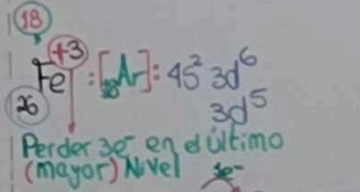 18
+3
Fe : [₁₈Ar]: 4s² 3d⁶
26
3d⁵
Perder 3e⁻ en el último
(mayor) Nivel 3e⁻